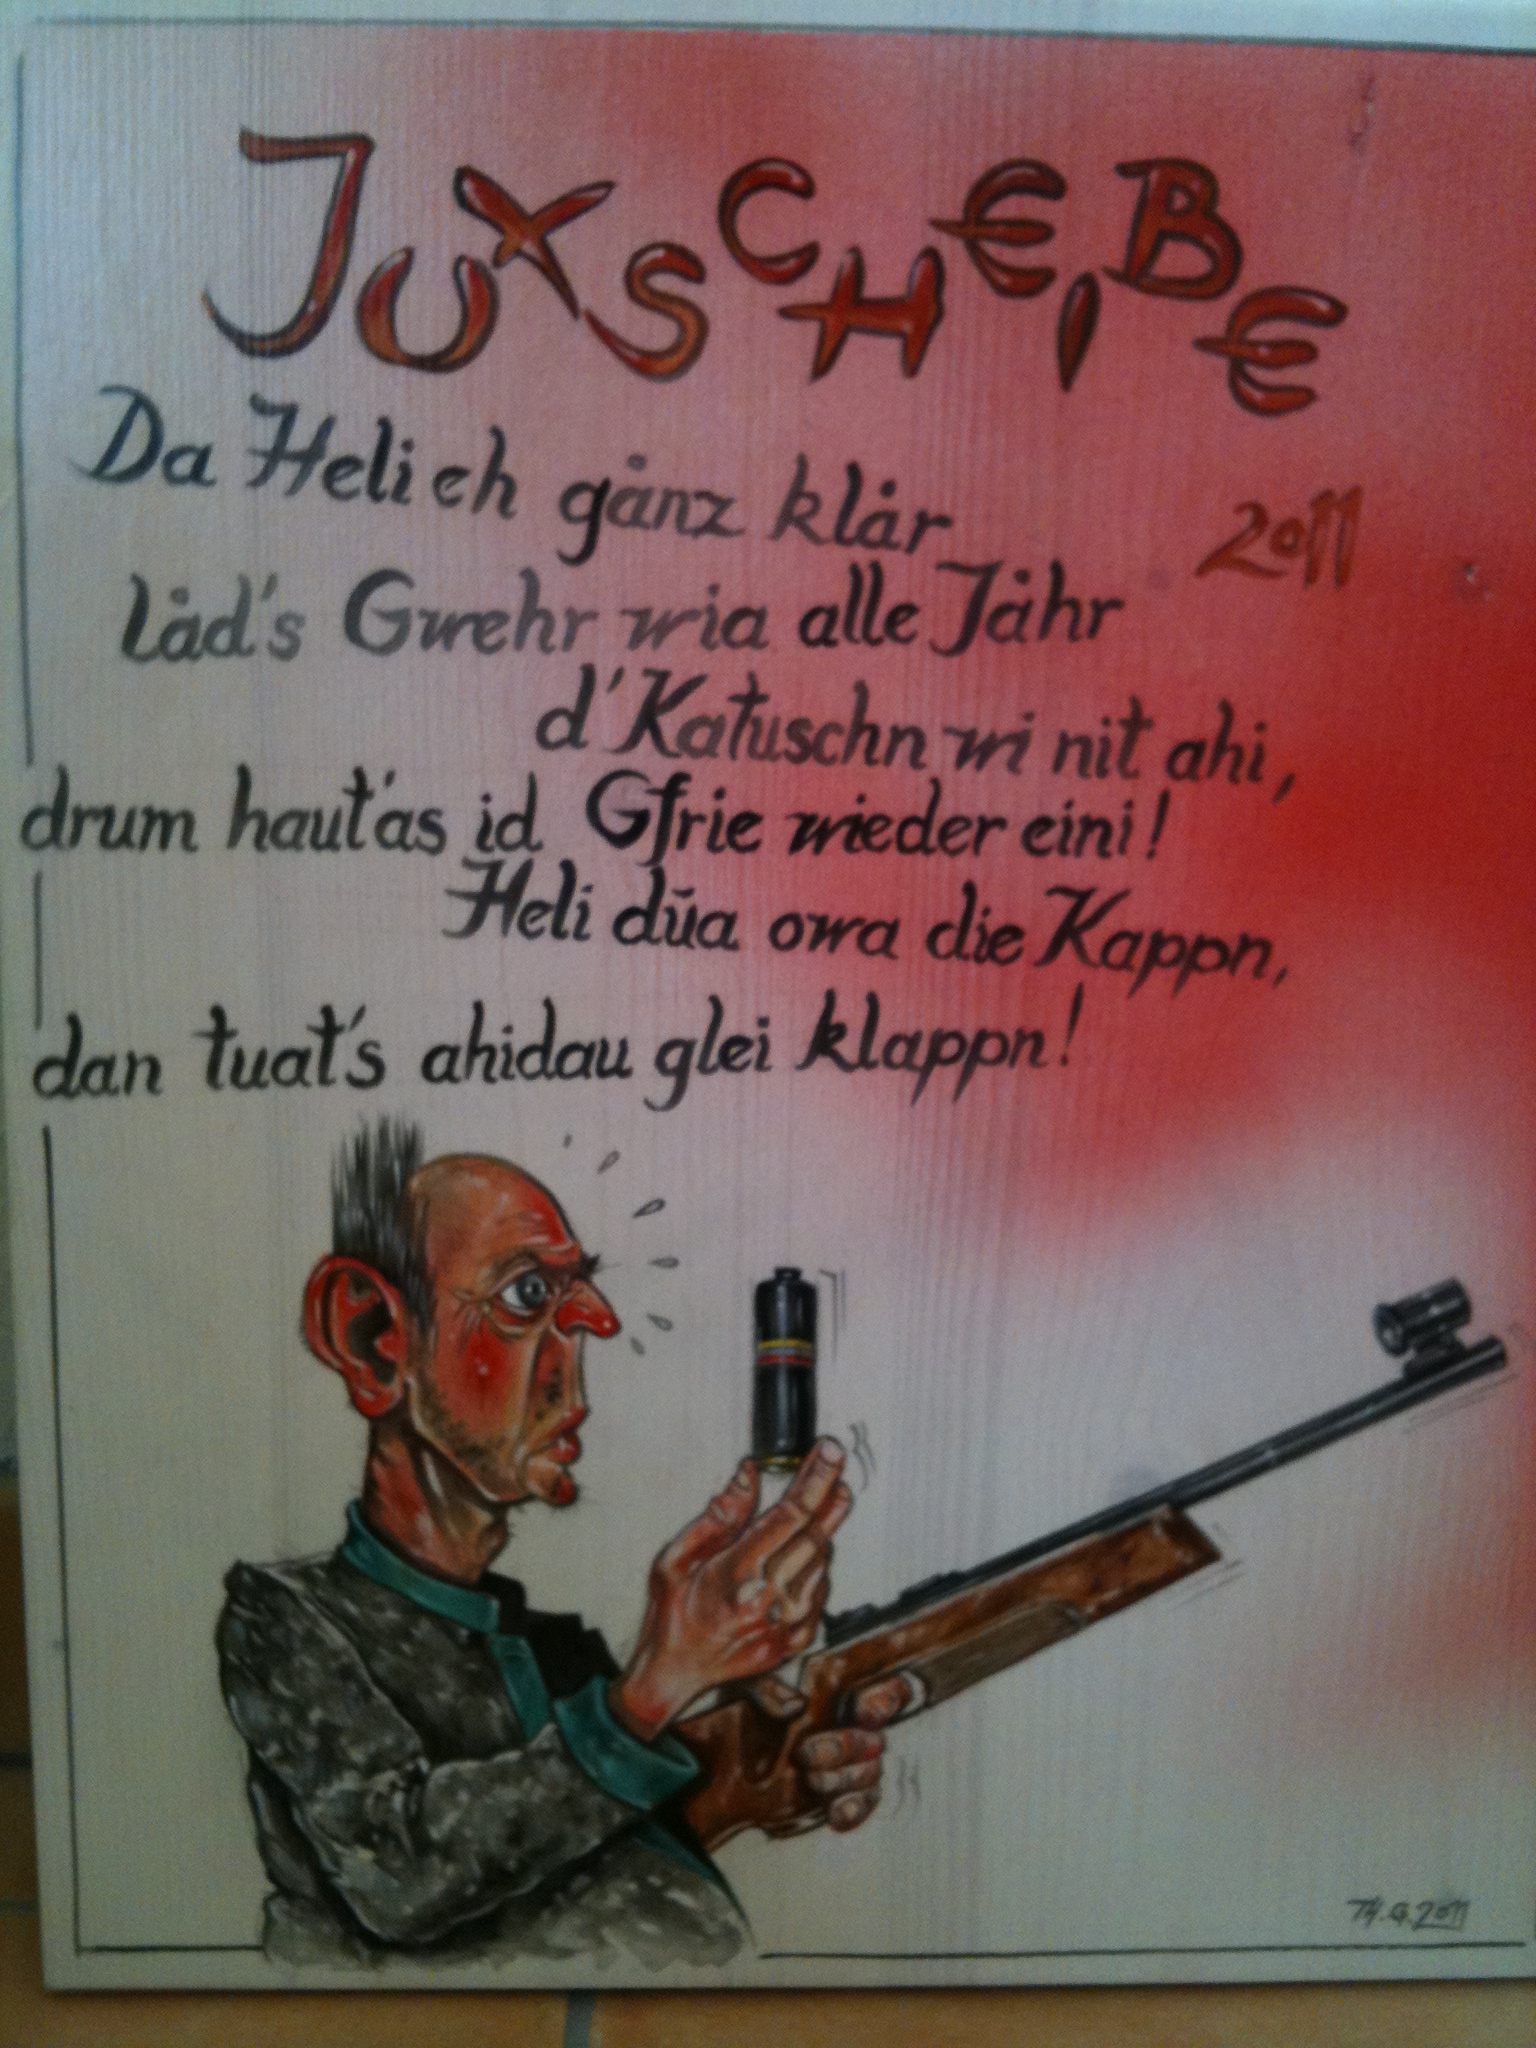 JUXSCHEIBE
2011
Da Heli eh gånz klår
låd's Gwehr wia alle Jåhr
d'Katuschn wi nit ahi,
drum haut'as id Gfrie wieder eini!
Heli dŭa owa die Kappn,
dan tuat's ahidau glei klappn!
TH.G.2011